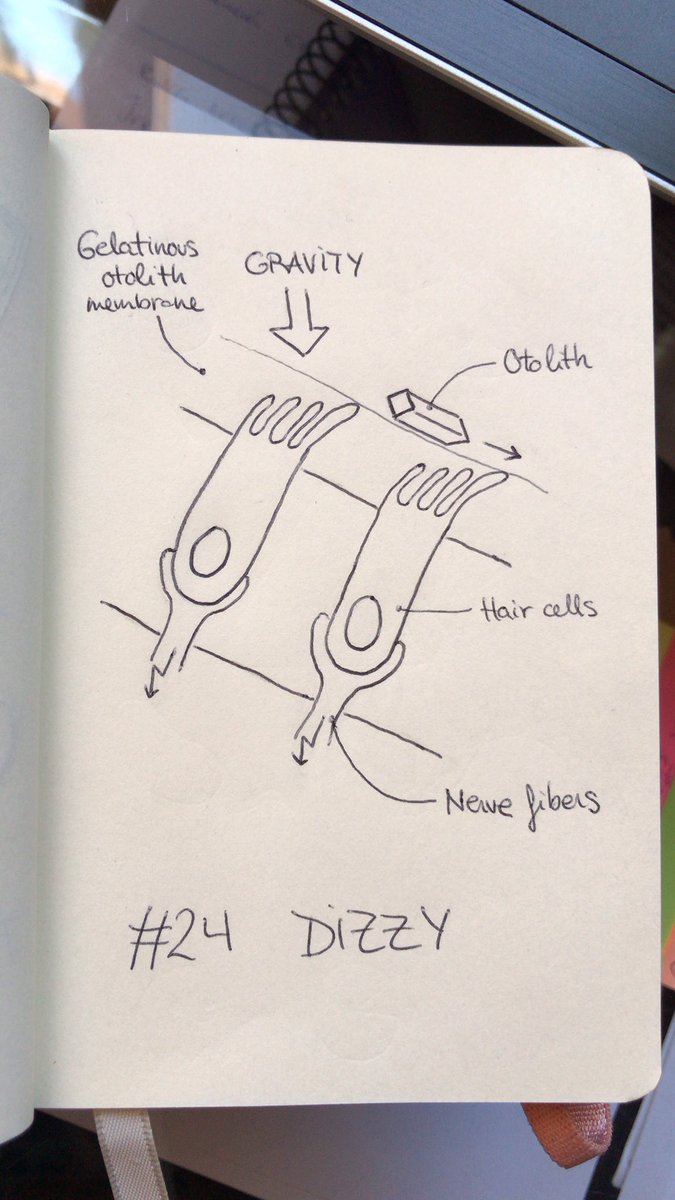 Gelatinous
otolith
membrane
GRAVITY
Otolith
Hair cells
Nerve fibers
#24 DIZZY